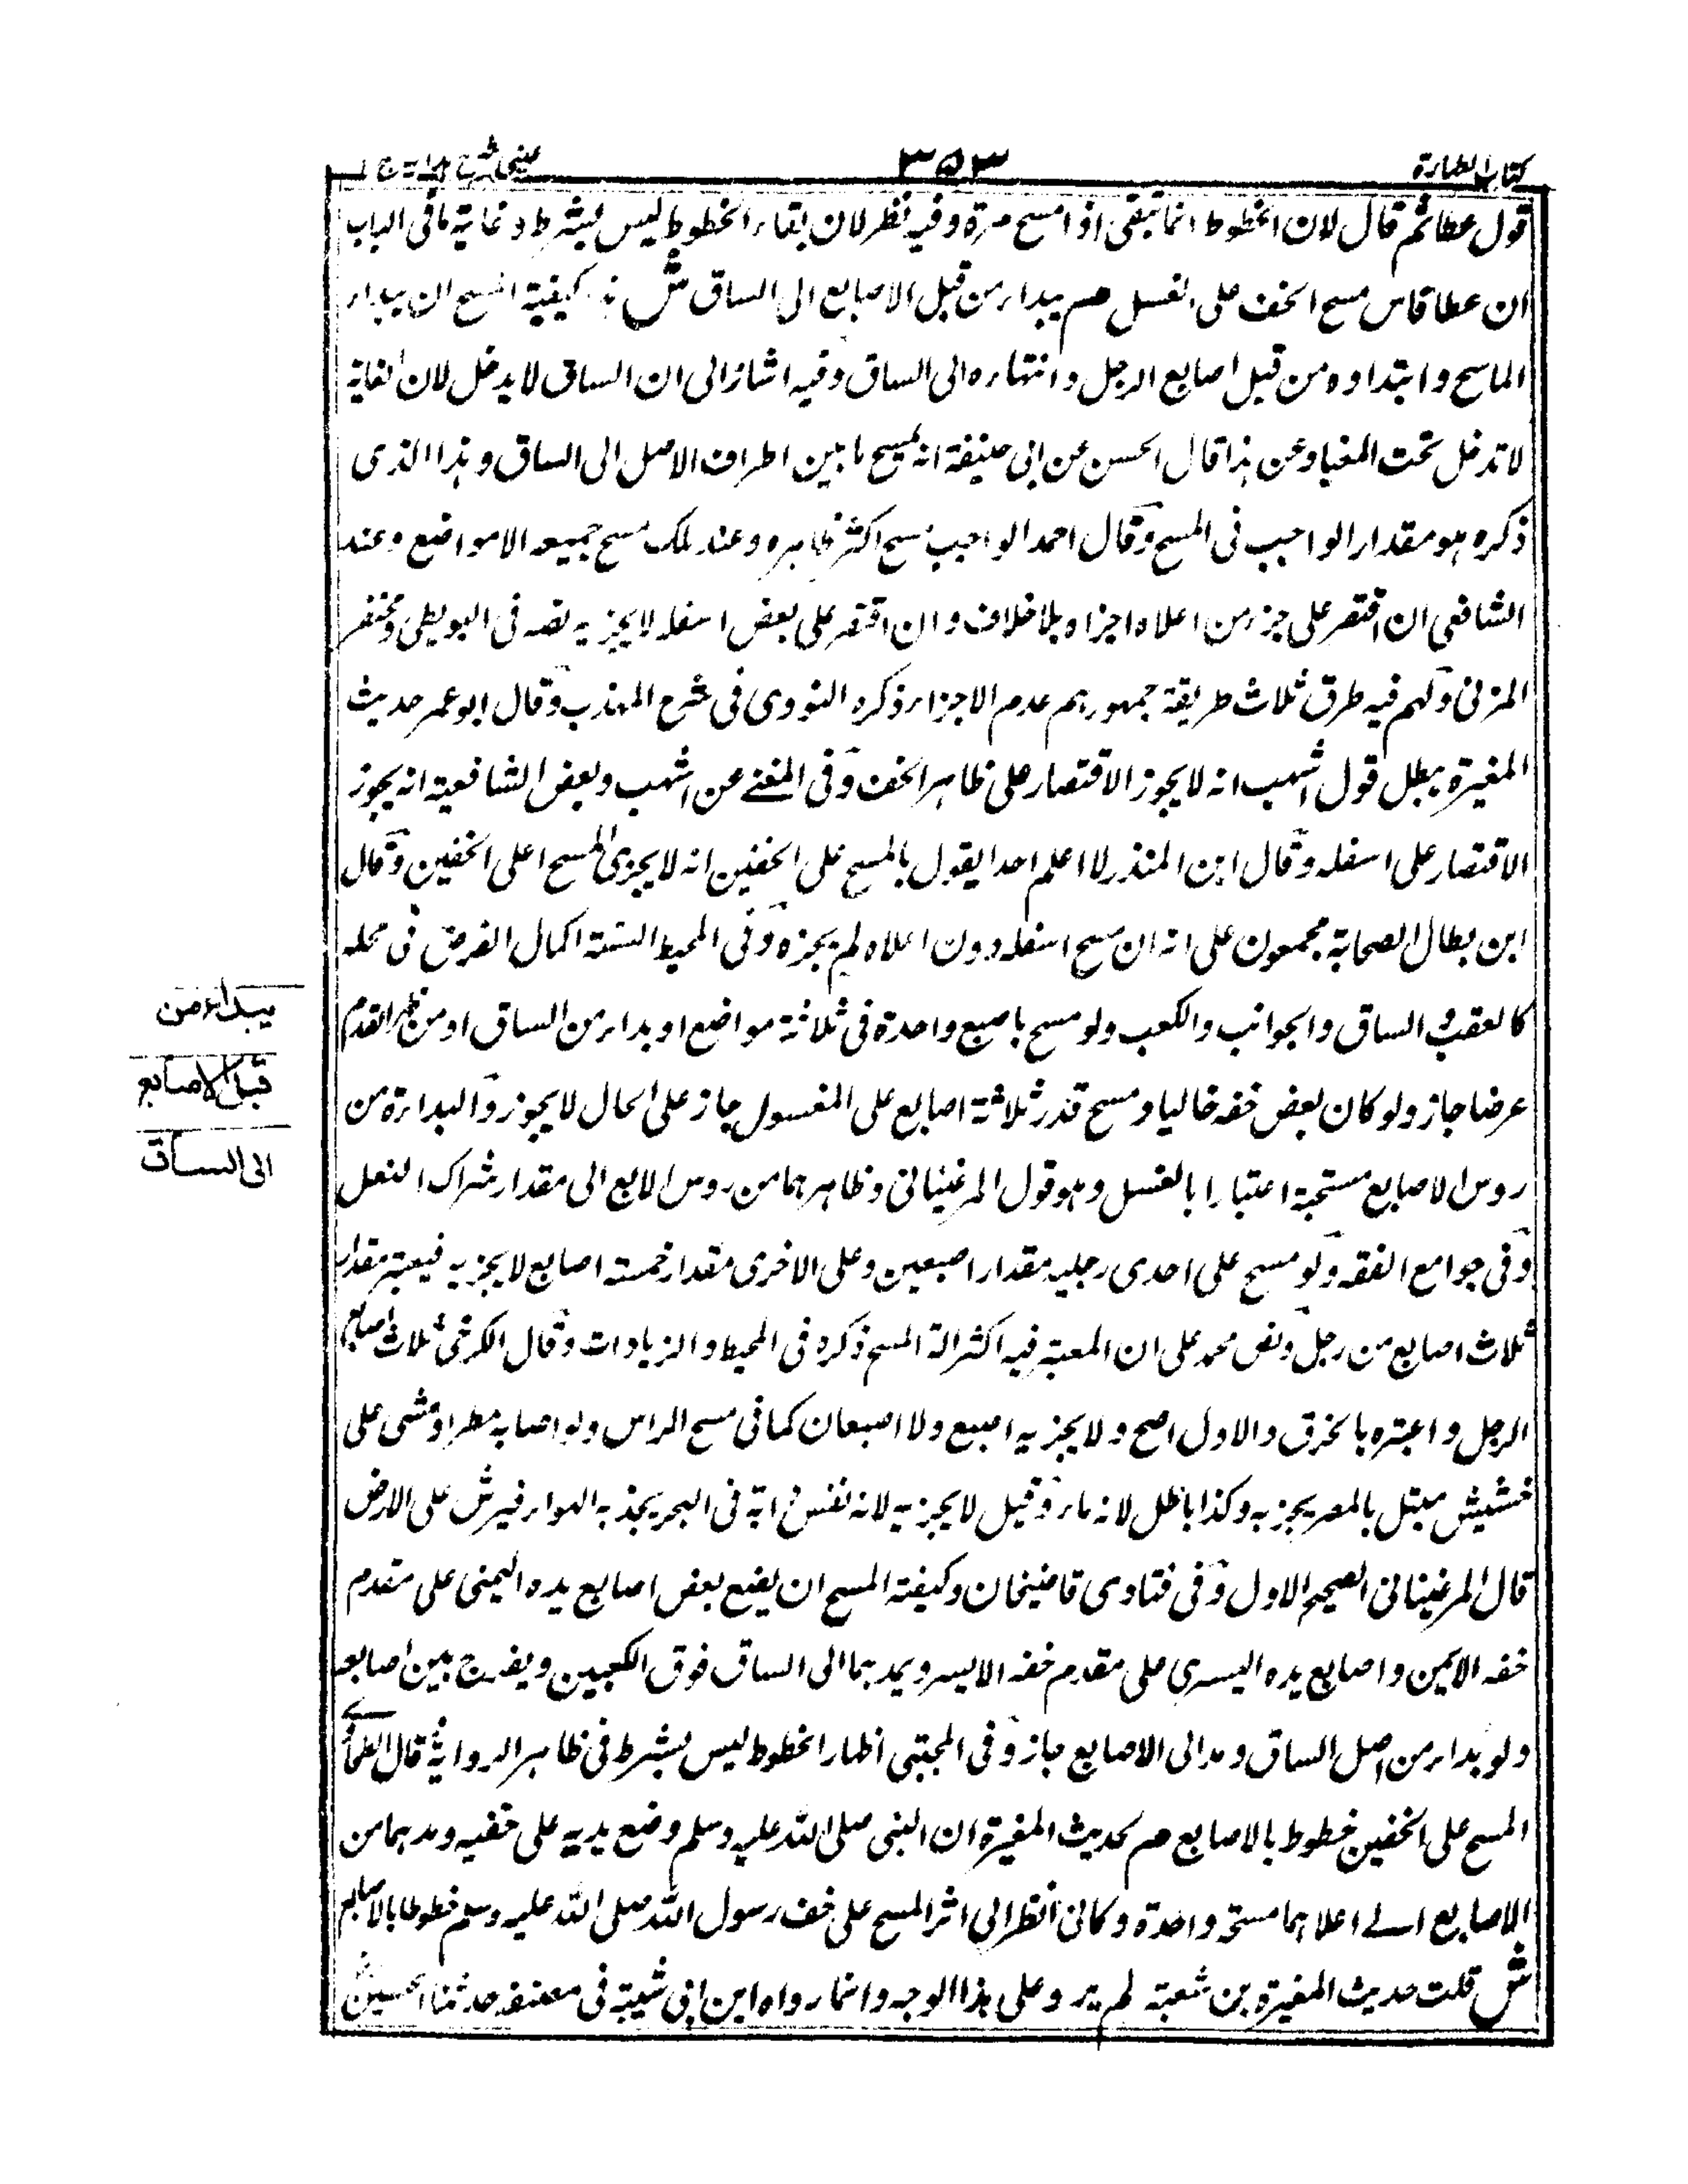 كتاب الطهارة
٣٥٣
عينى شرح هداية ج ١
قول عطا ثم قال لان الخطوط انما تبقى اذا مسح مرة وفيه نظر لان بقاء الخطوط ليس بشرط وغاية ما فى الباب
ان عطا قاس مسح الخف على الغسل هم يبداء من قبل الاصابع الى الساق ش كيفية المسح ان يبداء
الماسح وابتداوه من قبل اصابع الرجل وانتهاءه الى الساق وفيه اشار الى ان الساق لا يدخل لان الغاية
لا تدخل تحت المغيا وعن هذا قال الحسن عن ابى حنيفة انه يمسح ما بين اطراف الاصل الى الساق وهذا الذى
ذكره هو مقدار الواجب فى المسح وقال احمد الواجب مسح اكثر ظاهره وعند ملك مسح جميعه الا مواضع وعند
الشافعى ان اقتصر على جزء من اعلاه اجزاه بلا خلاف وان اقتصر على بعض اسفله لا يجزيه نصه فى البويطى ومختصر
المزنى ولهم فيه طرق ثلاث طريقة جمهورهم عدم الاجزاء ذكره النووى فى شرح المهذب وقال ابو عمر حديث
المغيرة يبطل قول اشهب انه لا يجوز الاقتصار على ظاهر الخف وفى المغنے عن اشهب وبعض الشافعية انه يجوز
الاقتصار على اسفله وقال ابن المنذر لا اعلم احدا يقول بالمسح على الخفين انه لا يجزى المسح اعلى الخفين وقال
ابن بطال الصحابة مجمعون على انه ان مسح اسفله دون اعلاه لم يجزه وفى المحيط السنة اكمال الفرض فى محله
كالعقب والساق والجوانب والكعب ولو مسح باصبع واحدة فى ثلاثة مواضع او بداء من الساق او من ظهر القدم
عرضا جاز ولو كان بعض خفه خاليا ومسح قدر ثلاثة اصابع على المغسول جاز على الحال لا يجوز والبداءة من
روس الاصابع مستحبة اعتبارا بالغسل وهو قول المرغينانى وظاهرهما من روس الابع الى مقدار شراك النعل
وفى جوامع الفقه ولو مسح على احدى رجليه مقدار اصبعين وعلى الاخرى مقدار خمسة اصابع لا يجزيه فيعتبر مقدار
ثلاث اصابع من رجل ونص محمد على ان المعتبر فيه اكثر الة المسح ذكره فى المحيط والزيادات وقال الكرخى ثلاث اصابع
الرجل واعتبره بالخرق والاول اصح ولا يجزيه اصبع ولا اصبعان كما فى مسح الراس ولو اصابه مطر او مشى على
خشيش مبتل بالمطر يجزيه وكذا باظل لانه ماء وقيل لا يجزيه لانه نفس دابة فى البحر يجذبه الهواء فيرش على الارض
قال المرغينانى الصحيح الاول وفى فتاوى قاضيخان وكيفية المسح ان يضع بعض اصابع يده اليمنى على مقدم
خفه الايمن واصابع يده اليسرى على مقدم خفه الايسر ويمدهما الى الساق فوق الكعبين ويفرج بين اصابعه
ولو بداء من اصل الساق ومد الى الاصابع جاز وفى المجتبى اظهار الخطوط ليس بشرط فى ظاهر الرواية قال الطحاوے
المسح على الخفين خطوط بالاصابع هم لحديث المغيرة ان النبى صلى الله عليه وسلم وضع يديه على خفيه ومدهما من
الاصابع الے اعلاهما مسحة واحدة وكانى انظر الى اثر المسح على خف رسول الله صلى الله عليه وسلم خطوطا بالاصابع
ش قلت حديث المغيرة بن شعبة لم يرو على هذا الوجه وانما رواه ابن ابى شيبة فى مصنفه حدثنا الحسين
يبداء من
قبل الاصابع
الى الساق